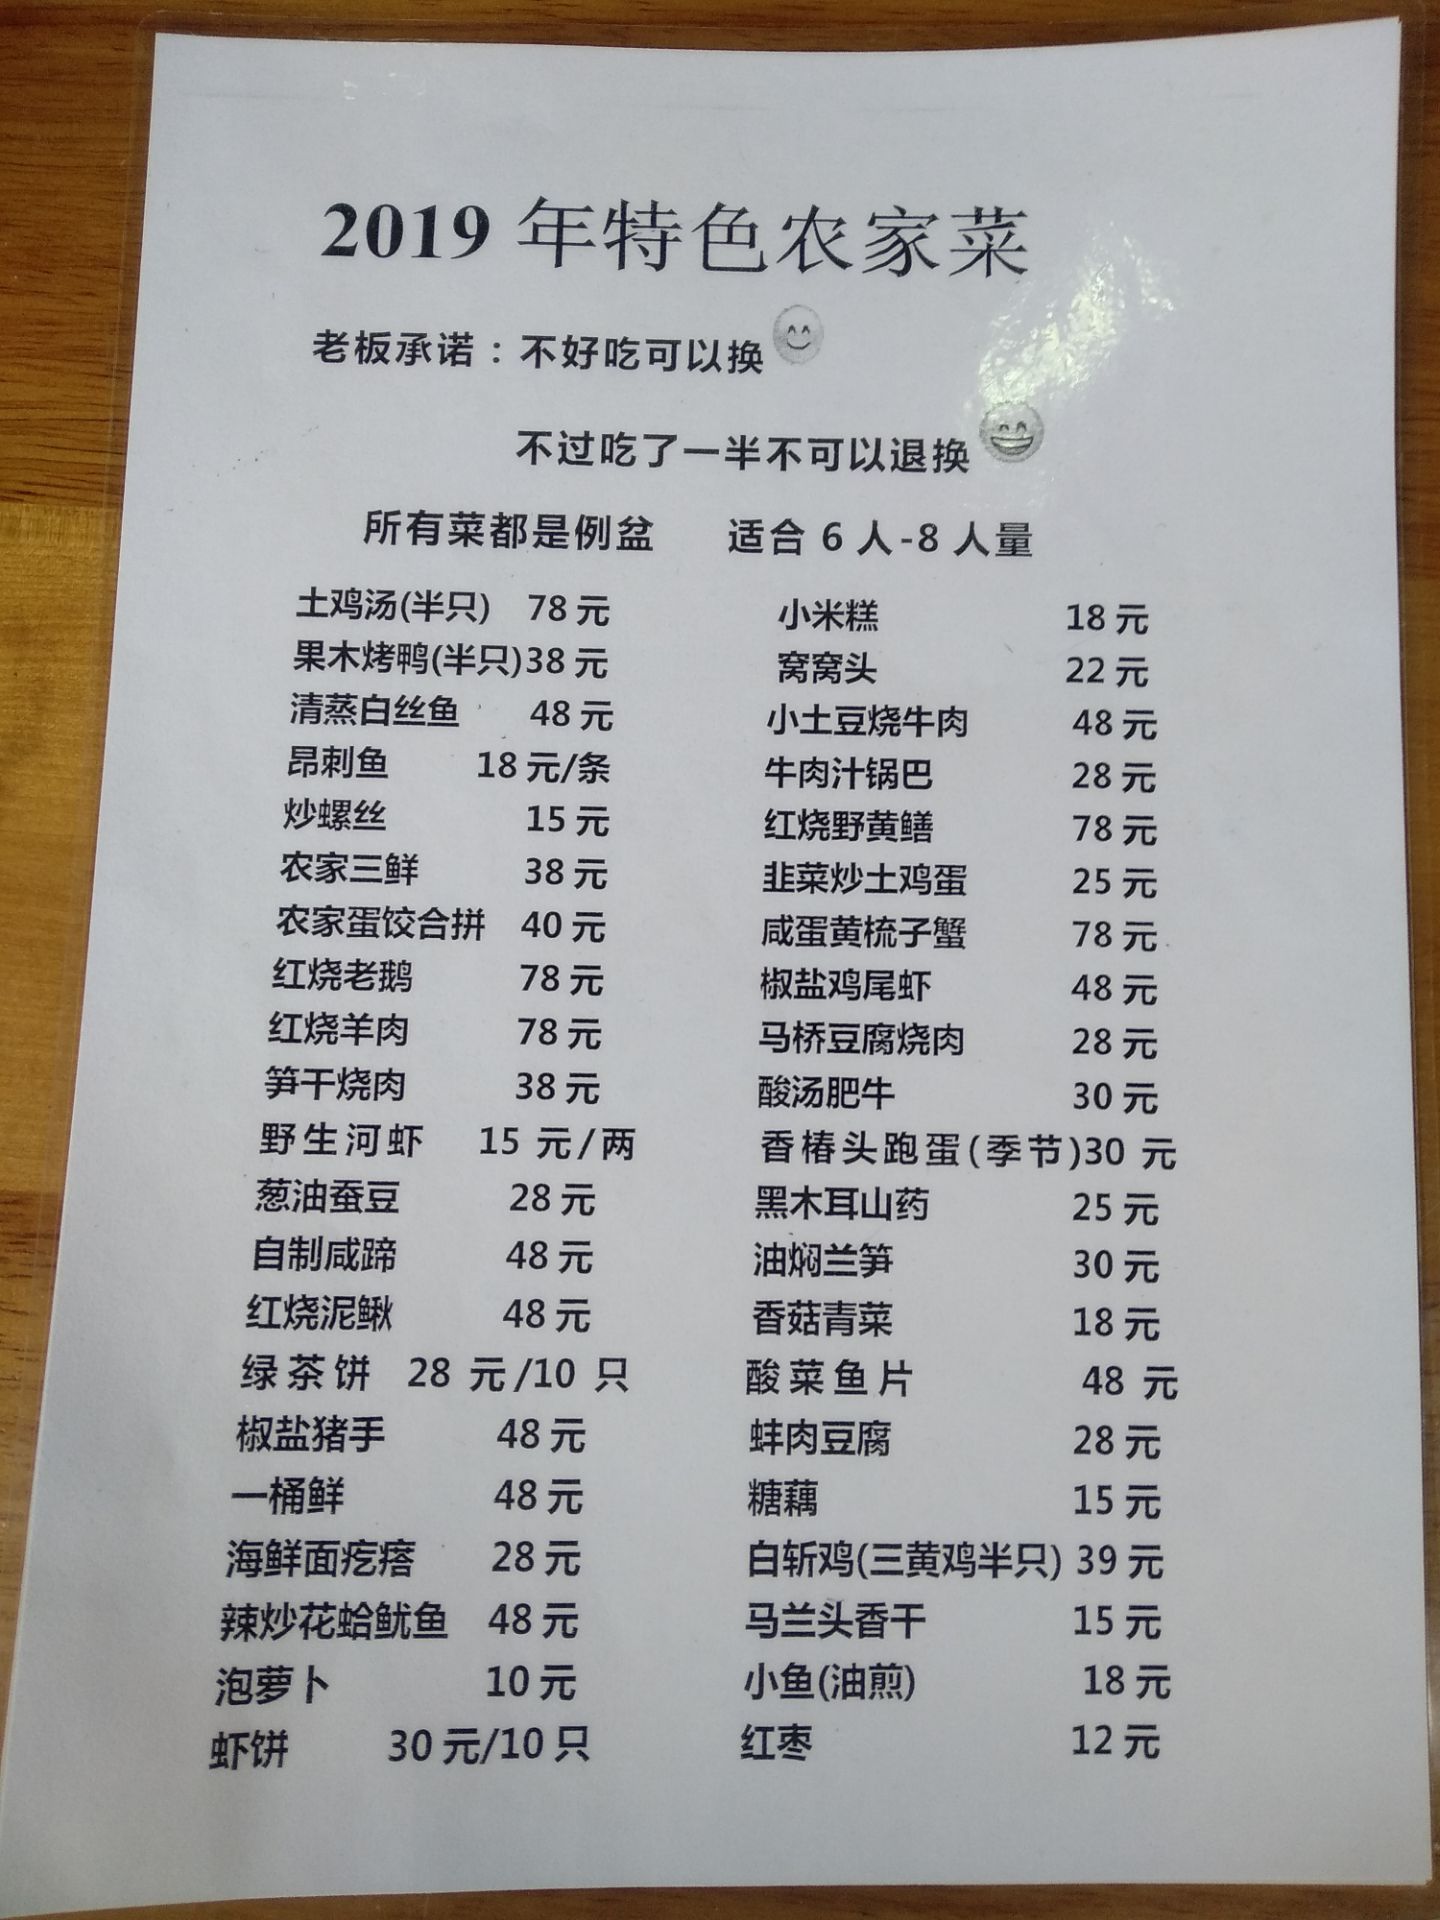 2019 年特色农家菜
老板承诺：不好吃可以换
不过吃了一半不可以退换
所有菜都是例盆 适合 6 人-8 人量
土鸡汤(半只) 78 元
果木烤鸭(半只)38 元
清蒸白丝鱼 48 元
昂刺鱼 18 元/条
炒螺丝 15 元
农家三鲜 38 元
农家蛋饺合拼 40 元
红烧老鹅 78 元
红烧羊肉 78 元
笋干烧肉 38 元
野生河虾 15 元/两
葱油蚕豆 28 元
自制咸蹄 48 元
红烧泥鳅 48 元
绿茶饼 28 元/10 只
椒盐猪手 48 元
一桶鲜 48 元
海鲜面疙瘩 28 元
辣炒花蛤鱿鱼 48 元
泡萝卜 10 元
虾饼 30 元/10 只
小米糕 18 元
窝窝头 22 元
小土豆烧牛肉 48 元
牛肉汁锅巴 28 元
红烧野黄鳝 78 元
韭菜炒土鸡蛋 25 元
咸蛋黄梳子蟹 78 元
椒盐鸡尾虾 48 元
马桥豆腐烧肉 28 元
酸汤肥牛 30 元
香椿头跑蛋(季节)30 元
黑木耳山药 25 元
油焖兰笋 30 元
香菇青菜 18 元
酸菜鱼片 48 元
蚌肉豆腐 28 元
糖藕 15 元
白斩鸡(三黄鸡半只) 39 元
马兰头香干 15 元
小鱼(油煎) 18 元
红枣 12 元